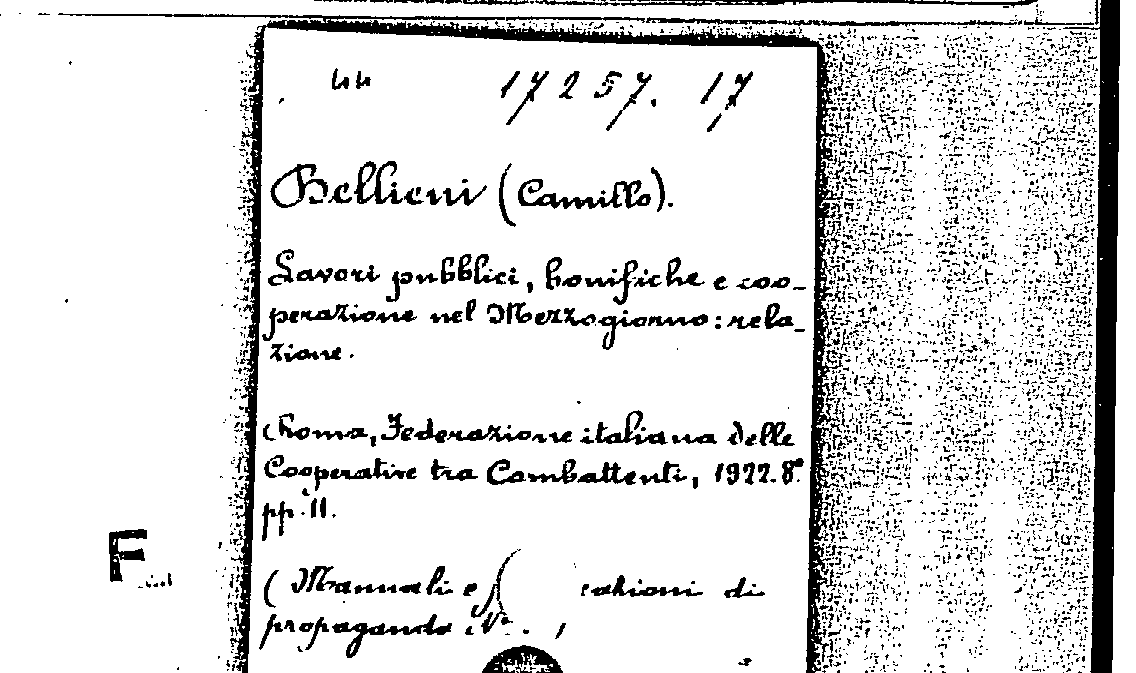 17257. 17
Bellieni (Camillo).
Lavori pubblici, bonifiche e coo-
perazione nel Mezzogiorno: rela-
zione.
Roma, Federazione italiana delle
Cooperative tra Combattenti, 1922. 8°
pp. 11.
(Manuali e di
propaganda N.
F